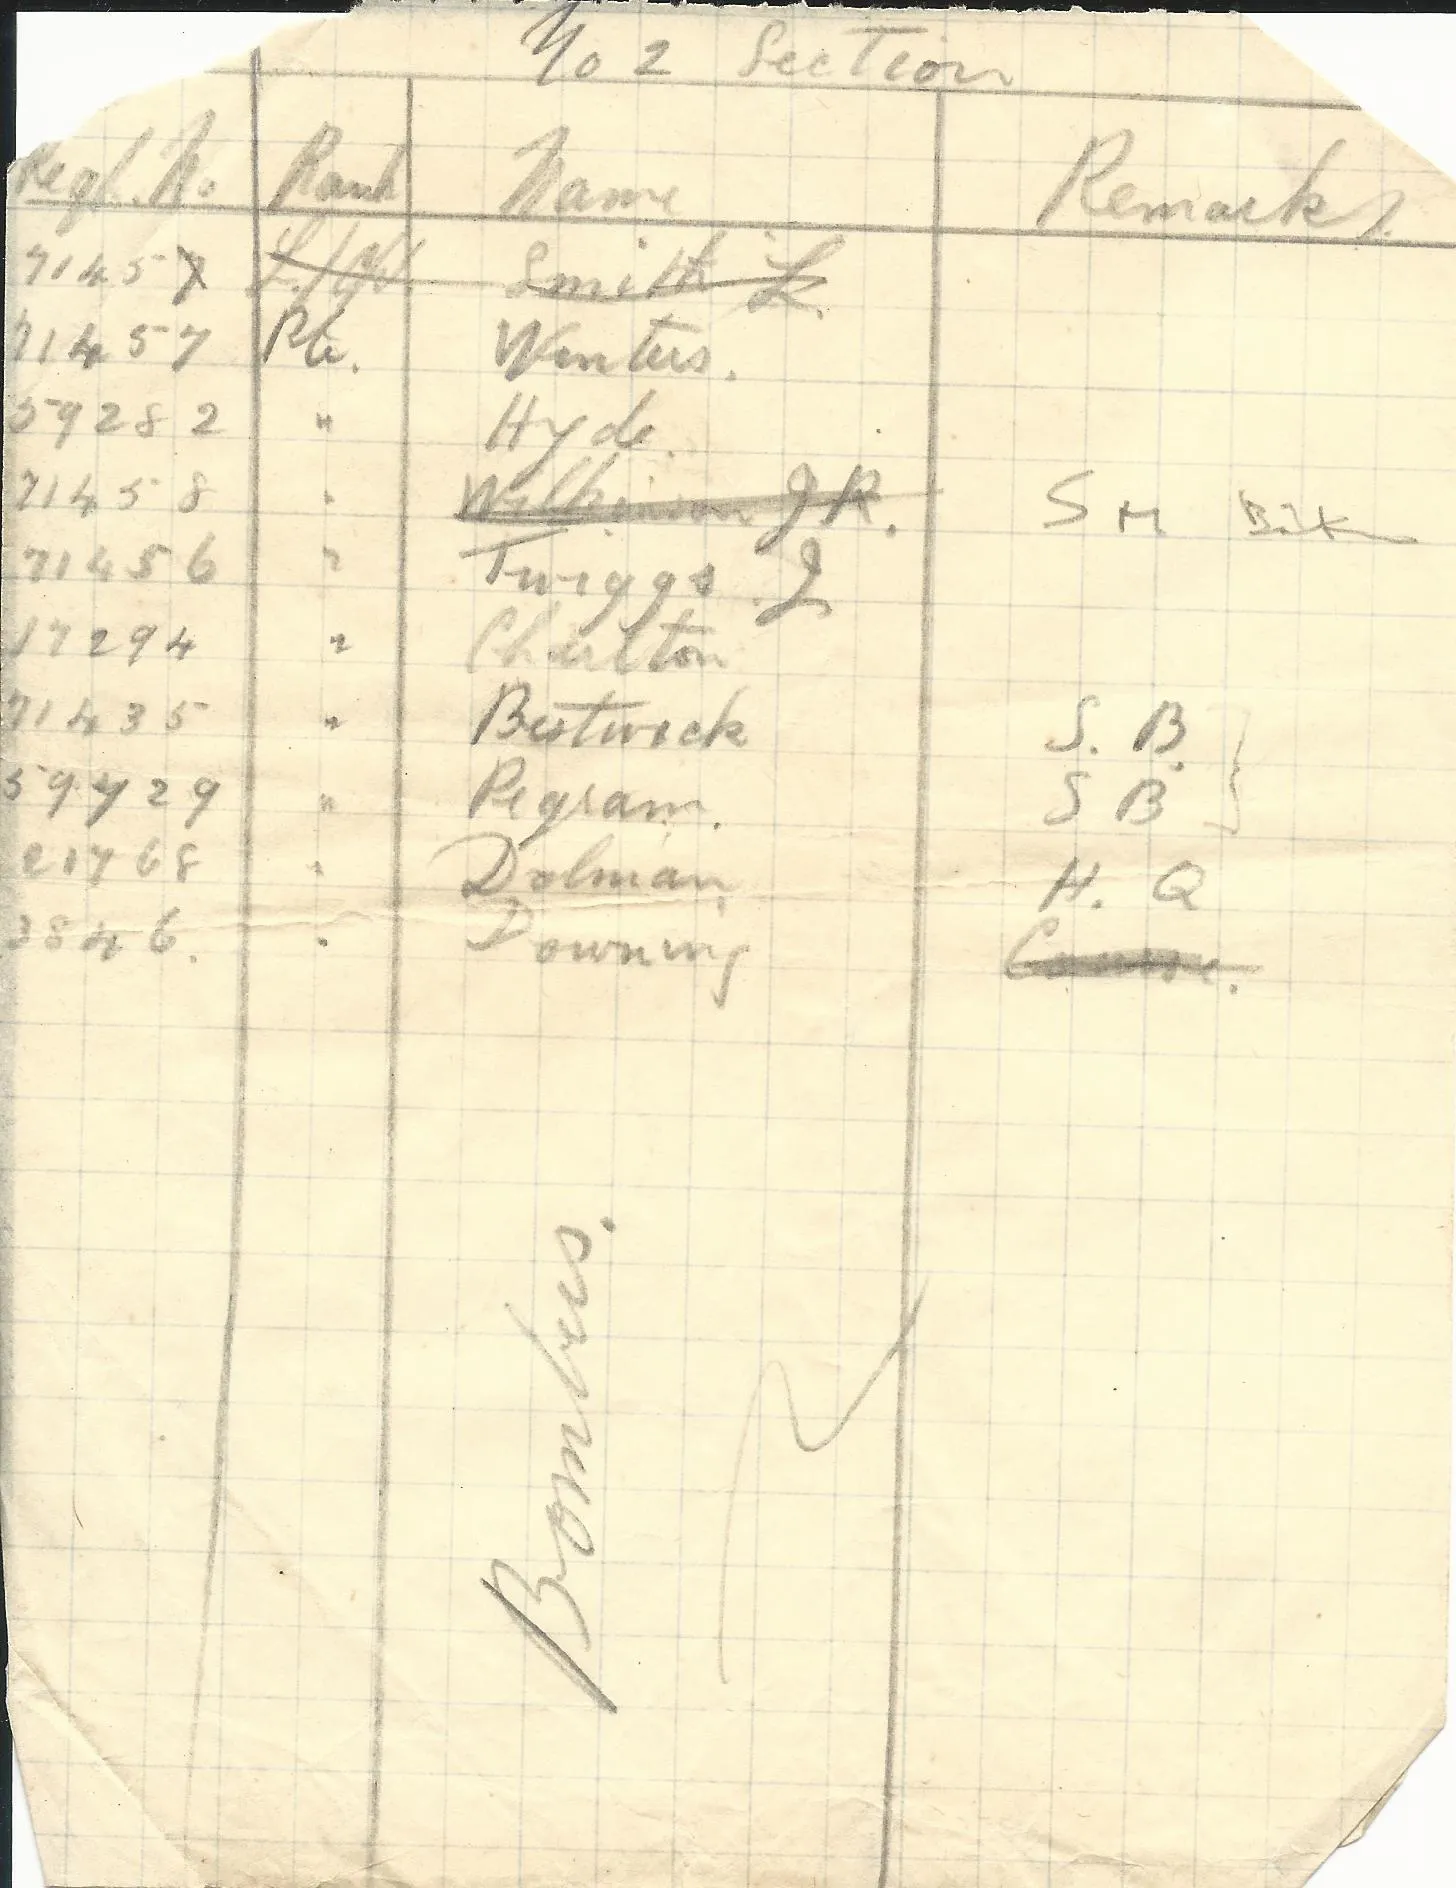 No 2 Section
Regl. No Rank Name Remarks.
7145 Smith L.
71457 Pte. Winters.
59282 " Hyde.
71458 " Wilkinson J R. S M
71456 " Twiggs J
17294 " Charlton
71435 " Bestwick S. B.
59729 " Pegram. S B
21768 " Dolman H. Q
3846. " Downing Course.
Bombers.